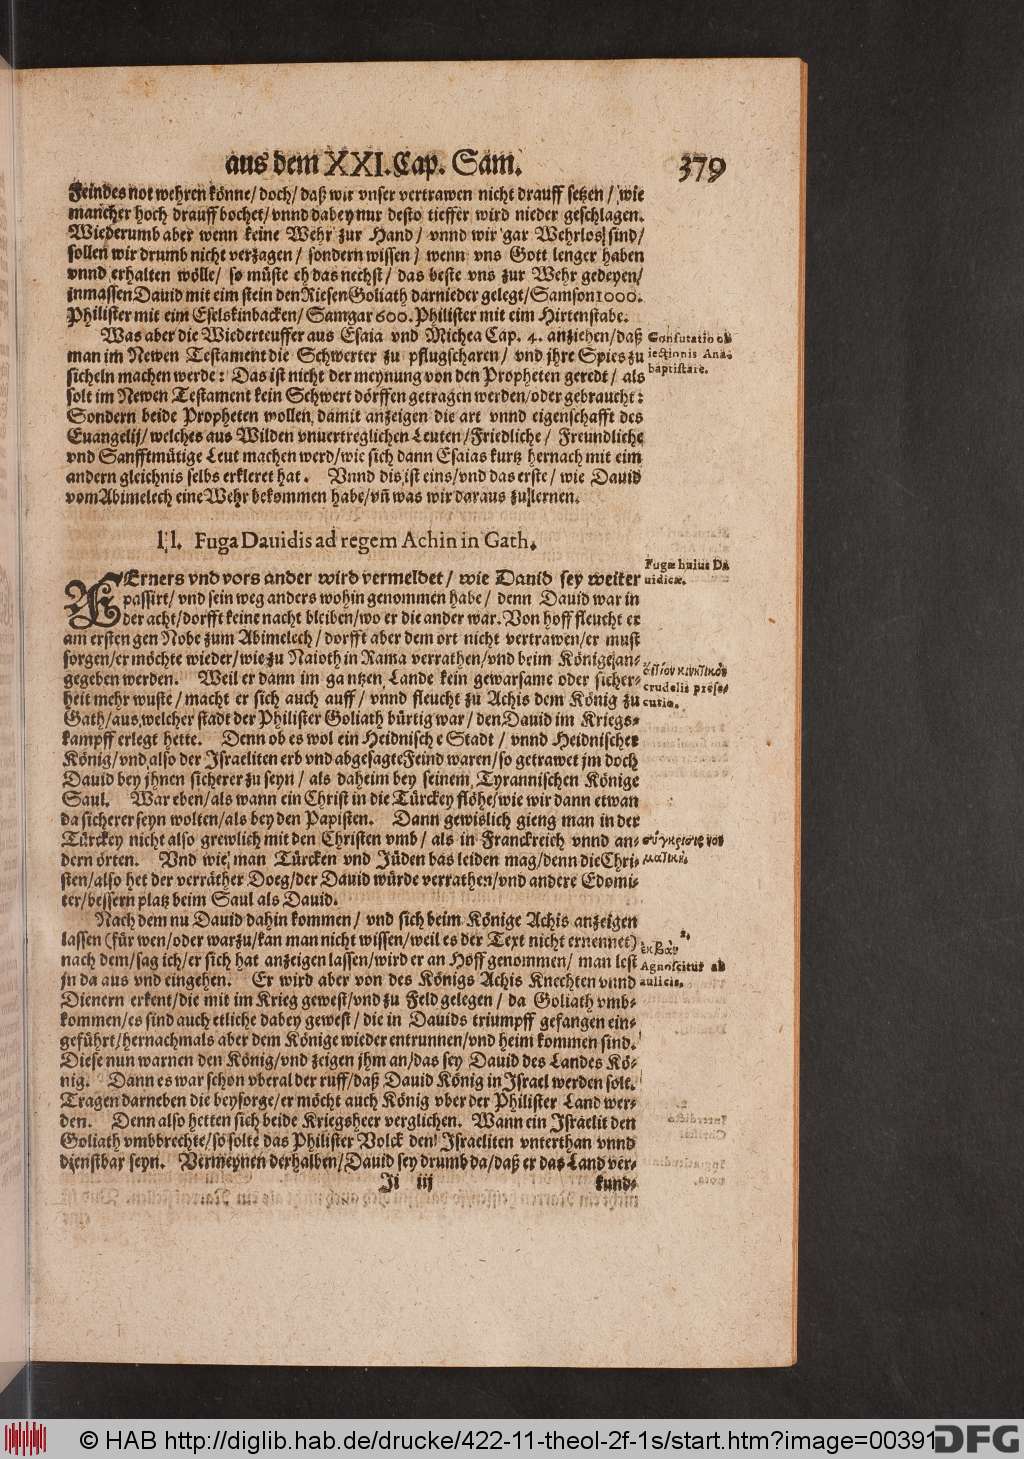 aus dem XXI. Cap. Sam. 379
Feindes not wehren könne/ doch/ daß wir vnser vertrawen nicht drauff setzen / wie
mancher hoch drauff bochet/ vnnd dabey nur desto tieffer wird nieder geschlagen.
Wiederumb aber wenn keine Wehr zur Hand/ vnnd wir gar Wehrlos sind/
sollen wir drumb nicht verzagen / sondern wissen / wenn vns Gott lenger haben
vnnd erhalten wölle/ so müste eh das nechst/ das beste vns zur Wehr gedeyen/
jnmassen Dauid mit eim stein den Riesen Goliath darnieder gelegt/ Samson 1000.
Philister mit eim Eselskinbacken/ Samgar 600. Philister mit eim Hirtenstabe.
Was aber die Wiederteuffer aus Esaia vnd Michea Cap. 4. anziehen/ daß
man im Newen Testament die Schwerter zu pflugscharen/ vnd jhre Spies zu
sicheln machen werde: Das ist nicht der meynung von den Propheten geredt/ als
solt im Newen Testament kein Schwert dörffen getragen werden/ oder gebraucht:
Sondern beide Propheten wollen damit anzeigen die art vnnd eigenschafft des
Euangelij/ welches aus Wilden vnuertreglichen Leuten/ Friedliche/ Freundliche
vnd Sanfftmütige Leut machen werd/ wie sich dann Esaias kurtz hernach mit eim
andern gleichnis selbs erkleret hat. Vnnd dis ist eins/ vnd das erste/ wie Dauid
vom Abimelech eine Wehr bekommen habe/ vn̄ was wir daraus zu lernen.
Confutatio ob
iectionis Ana-
baptistare.
II. Fuga Dauidis ad regem Achin in Gath.
FErners vnd vors ander wird vermeldet/ wie Dauid sey weiter
passirt/ vnd sein weg anders wohin genommen habe/ denn Dauid war in
der acht/ dorfft keine nacht bleiben/ wo er die ander war. Von hoff fleucht er
am ersten gen Nobe zum Abimelech/ dorfft aber dem ort nicht vertrawen/ er must
sorgen/ er möchte wieder/ wie zu Naioth in Rama verrathen/ vnd beim Könige an-
gegeben werden. Weil er dann im gantzen Lande kein gewarsame oder sicher-
heit mehr wuste/ macht er sich auch auff/ vnnd fleucht zu Achis dem König zu
Gath/ aus welcher stadt der Philister Goliath bürtig war/ den Dauid im Kriegs-
kampff erlegt hette. Denn ob es wol ein Heidnische Stadt/ vnnd Heidnischer
König/ vnd also der Israeliten erb vnd abgesagte Feind waren/ so getrawet jm doch
Dauid bey jhnen sicherer zu seyn/ als daheim bey seinem Tyrannischen Könige
Saul. War eben/ als wann ein Christ in die Türckey flöhe/ wie wir dann etwan
da sicherer seyn wolten/ als bey den Papisten. Dann gewislich gieng man in der
Türckey nicht also grewlich mit den Christen vmb/ als in Franckreich vnnd an-
dern örten. Vnd wie man Türcken vnd Jüden bas leiden mag/ denn die Chri-
sten/ also het der verräther Doeg/ der Dauid würde verrathen/ vnd andere Edomi-
ter/ bessern platz beim Saul als Dauid.
Fugæ huius Da
uidicæ.
αἴτιον κινητικὸν
crudelis perse-
cutio.
σύγκρισις
Nach dem nu Dauid dahin kommen/ vnd sich beim Könige Achis anzeigen
lassen (für wen/ oder warzu/ kan man nicht wissen/ weil es der Text nicht ernennet)
nach dem/ sag ich/ er sich hat anzeigen lassen/ wird er an Hoff genommen/ man lest
jn da aus vnd eingehen. Er wird aber von des Königs Achis Knechten vnnd
Dienern erkent/ die mit im Krieg gewest/ vnd zu Feld gelegen/ da Goliath vmb-
kommen/ es sind auch etliche dabey gewest/ die in Dauids triumpff gefangen ein-
geführt/ hernachmals aber dem Könige wieder entrunnen/ vnd heim kommen sind.
Diese nun warnen den König/ vnd zeigen jhm an/ das sey Dauid des Landes Kö-
nig. Dann es war schon vberal der ruff/ daß Dauid König in Israel werden solt.
Tragen darneben die beysorge/ er möcht auch König vber der Philister Land wer-
den. Denn also hetten sich beide Kriegsheer verglichen. Wann ein Israelit den
Goliath vmbbrechte/ so solte das Philister Volck den Israeliten vnterthan vnnd
dienstbar seyn. Vermeynen derhalben/ Dauid sey drumb da/ daß er das Land ver-
Agnoscitur ab
aulicis.
Ji iij kund-
© HAB http://diglib.hab.de/drucke/422-11-theol-2f-1s/start.htm?image=00391
DFG